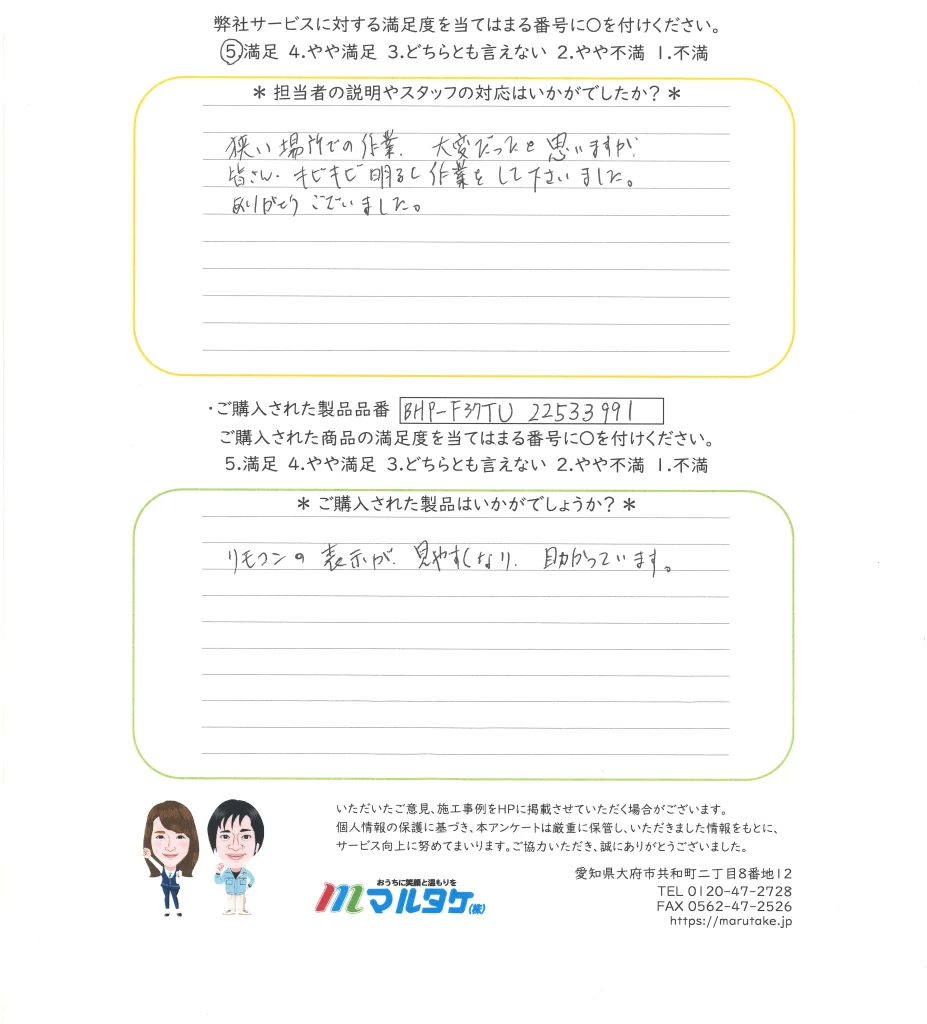 弊社サービスに対する満足度を当てはまる番号に〇を付けください。
5.満足 4.やや満足 3.どちらとも言えない 2.やや不満 1.不満
＊ 担当者の説明やスタッフの対応はいかがでしたか？ ＊
狭い場所での作業、大変だったと思いますが、
皆さん、キビキビ明るく作業をして下さいました。
ありがとうございました。
・ご購入された製品品番 BHP-F37TU 22533991
ご購入された商品の満足度を当てはまる番号に〇を付けください。
5.満足 4.やや満足 3.どちらとも言えない 2.やや不満 1.不満
＊ ご購入された製品はいかがでしょうか？ ＊
リモコンの表示が、見やすくなり、助かっています。
いただいたご意見、施工事例をHPに掲載させていただく場合がございます。
個人情報の保護に基づき、本アンケートは厳重に保管し、いただきました情報をもとに、
サービス向上に努めてまいります。ご協力いただき、誠にありがとうございました。
おうちに笑顔と温もりを
マルタケ(株)
愛知県大府市共和町二丁目8番地12
TEL 0120-47-2728
FAX 0562-47-2526
https://marutake.jp